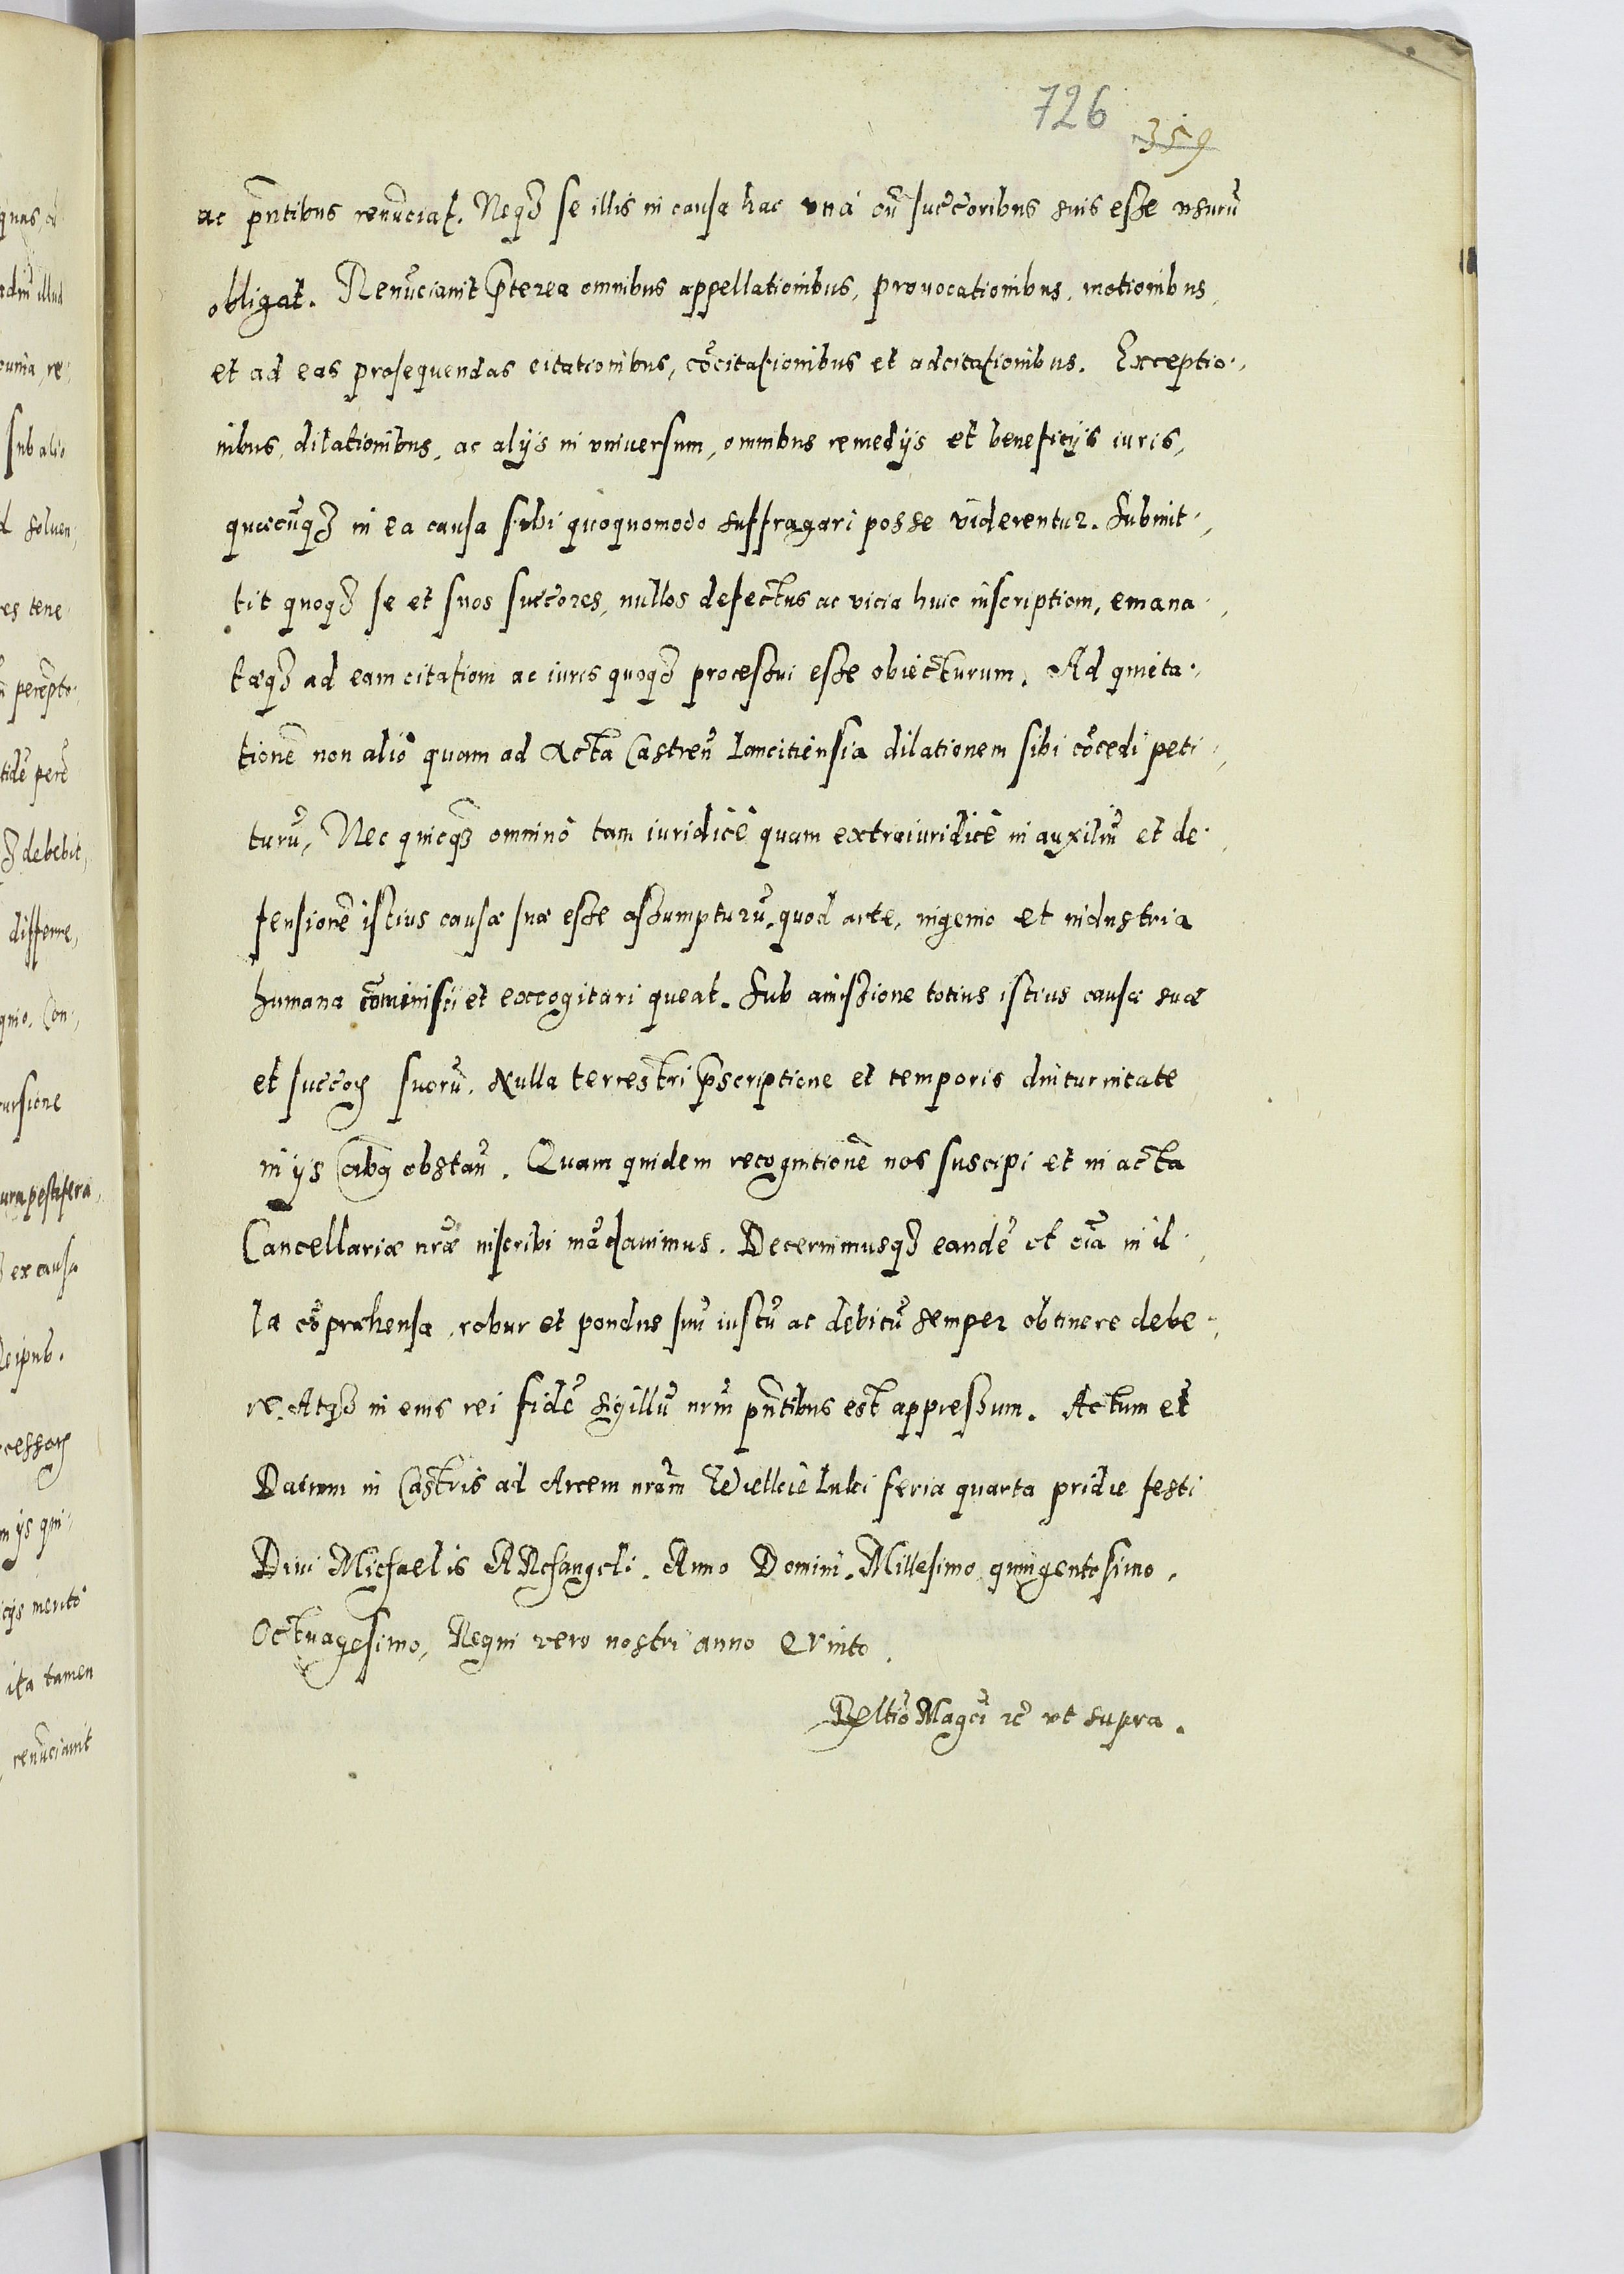 726
359
ac pñtibus renũciat. Neqꝫ se illis in causa hac vná cũ succ̃oribus suis esse usurũ
obligat. Renũciauit p̃terea omnibus appellationibus, prouocationibus, motionibus,
et ad eas prosequendas citationibus, cõcitationibus et adcitationibus. Exceptio-
nibus, dilationibus, ac alijs in vniuersum, omnibus remedijs et beneficijs iuris,
quæcũqꝫ in ea causa sibi quoquomodo suffragari posse viderentur. Submit-
tit quoqꝫ se et suos succ̃ores, nullos defectus ac vicia huic inscriptioni, emana-
tæqꝫ ad eam citationi ac iuris quoqꝫ processui esse obiecturum. Ad quieta-
tionẽ non alió quam ad Acta Castreñ Lancitiensia dilationem sibi cõcedi peti-
turũ, Nec quicqꝫ omninò tam iuridicè quam extraiuridicè in auxiliũ et de-
fensionẽ istius causæ suæ esse assumpturũ, quod arte, ingenio et industria
humana cõminisci et excogitari queat. Sub amissione totius istius causæ suæ
et succ̃oꝝ suorũ. Nulla terrestri p̃scriptione et temporis diuturnitate
in ijs obstañ. Quam quidem recognitionẽ nos suscipi et in acta
Cancellariæ nr̃æ inscribi mãdauimus. Decernimusqꝫ eandẽ et oĩa in il-
la cõpræhensa, robur et pondus suũ iustũ ac debitũ semper obtinere debe-
re. Atqꝫ in eius rei fidẽ sigillũ nr̃m pñtibus est appressum. Actum et
Datum in Castris ad Arcem nr̃am Wielkie Luki feria quarta pridie festi
Diui Michaelis ARchangeli. Anno Domini. Millesimo quingentesimo,
Octuagesimo, Regni vero nostri anno Qvinto.
Rel̃tio Magci ꝛc̃ vt supra.